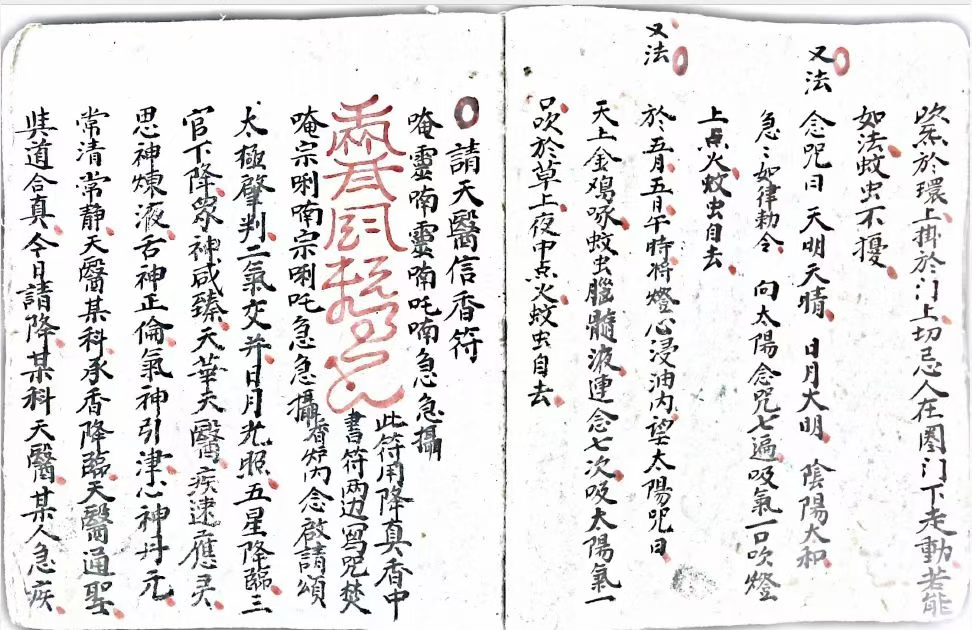 吹炁於環上掛於门上切忌人在圏门下走動若能
如法蚊虫不擾
又法 念咒曰 天明天晴 日月大明 陰陽大和
急〻如律勅令 向太陽念咒七遍吸氣一口吹燈
上点火蚊虫自去
又法
於五月五日午時将燈心浸油内望太陽咒曰
天上金鳮啄蚊虫腦髓液連念七次吸太陽氣一
口吹於草上夜中点火蚊虫自去
請天醫信香符
唵靈喃靈喃吒喃急急攝
此符用降真香中
書符两边寫咒焚
唵宗唎喃宗唎吒急急攝香炉内念啟請頌
太極肇判二氣交并日月光照五星降臨三
官下降眾神咸臻天華夫醫疾速應灵
思神煉液舌神正倫氣神引津心神丹元
常清常静天醫某科承香降臨天醫通聖
與道合真今日請降某科天醫某人急疾